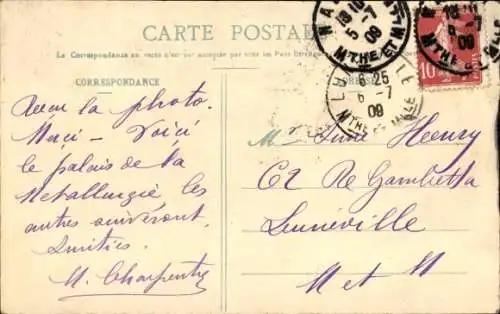 CARTE POSTALE
La Correspondance au recto n'est pas acceptée par tous les Pays Étrangers
CORRESPONDANCE
Reçu la photo.
Merci - Voici
le palais de la
Metallurgie les
autres suivront.
Amitiés.
M. Charpentier
18 10
5 - 7
09
10
6 25
6 - 7
09
Mr Henry
62 Re Gambetta
Lunéville
M et M